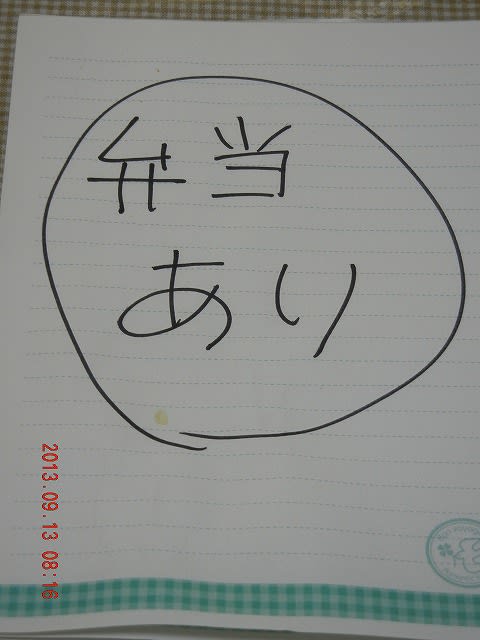 弁当
あり
2013.09.13 08:16